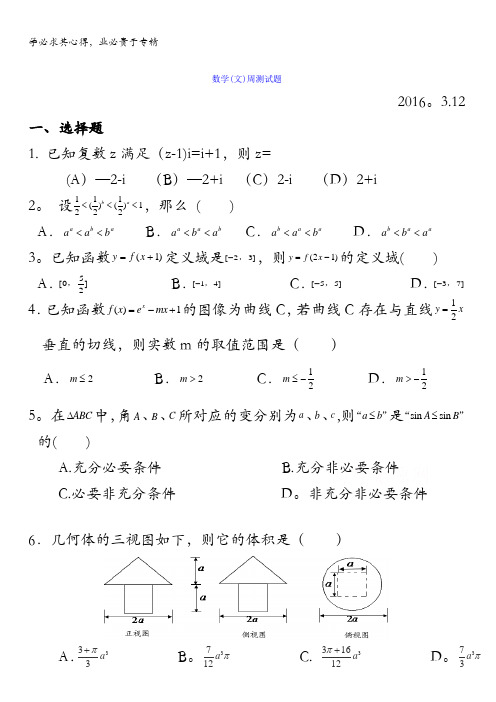 学必求其心得，业必贵于专精
数学(文)周测试题
2016。3.12
一、选择题
1. 已知复数 z 满足（z-1)i=i+1，则 z=
(A）—2-i （B）—2+i （C）2-i （D）2+i
2。 设 1/2<(1/2)^b<(1/2)^a<1，那么 ( )
A．a^a<a^b<b^a B．a^a<b^a<a^b C．a^b<a^a<b^a D．a^b<b^a<a^a
3。已知函数 y=f(x+1) 定义域是[-2，3]，则 y=f(2x-1) 的定义域( )
A．[0，5/2] B．[-1，4] C．[-5，5] D．[-3，7]
4．已知函数 f(x)=e^x-mx+1 的图像为曲线 C，若曲线 C 存在与直线 y=1/2 x
垂直的切线，则实数 m 的取值范围是（ ）
A．m≤2 B．m>2 C．m≤-1/2 D．m>-1/2
5。在ΔABC 中，角 A、B、C 所对应的变分别为 a、b、c,则“a≤b”是“sin A≤sin B”
的( )
A.充分必要条件 B.充分非必要条件
C.必要非充分条件 D。非充分非必要条件
6．几何体的三视图如下，则它的体积是（ ）
a
a
2a
正视图
2a
侧视图
a
a
2a
俯视图
A．(3+π)/3 a³ B。7/12 a³π C. (3π+16)/12 a³ D。7/3 a³π